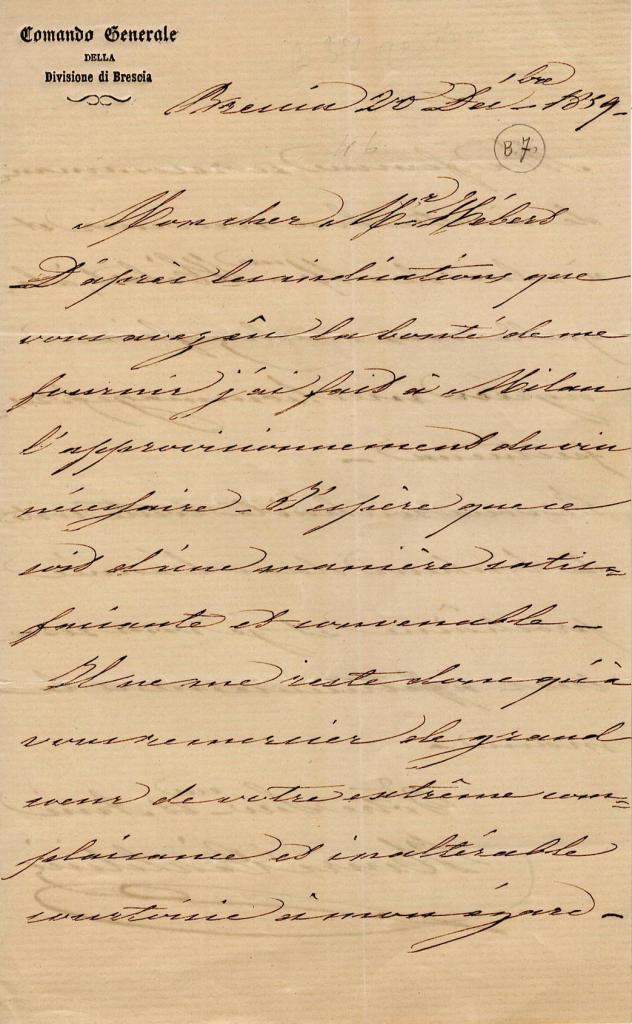 Comando Generale
DELLA
Divisione di Brescia
Brescia 20 Dés.bre 1859.
B7
Mon cher Mr Hébert
D'après les indications que
vous avez eû la bonté de me
fournir j'ai fait à Milan
l'approvisionnement du vin
nécessaire_ J'espère que ce
soit d'une manière satis=
faisante et convenable_
Il ne me reste donc qu'à
vous remercier de grand
coeur de votre extrême com=
plaisance et inaltérable
courtoisie à mon égard_